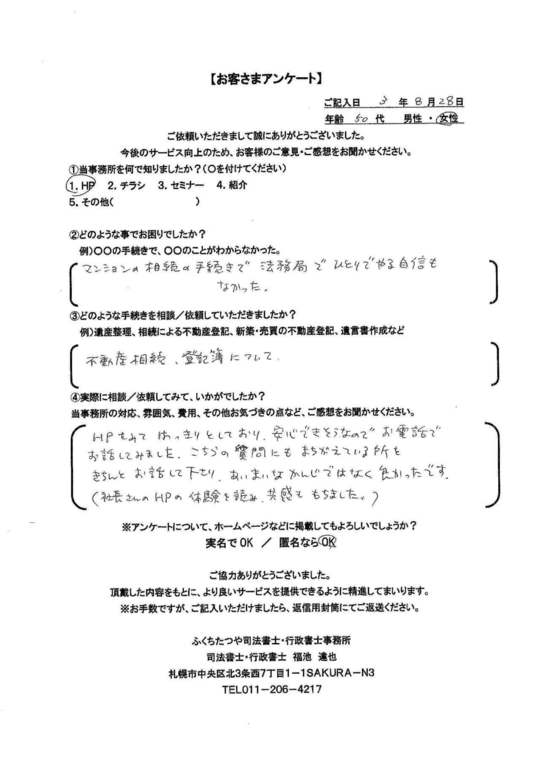 【お客さまアンケート】
ご記入日 3 年 8 月 28 日
年齢 50 代 男性 ・ 女性
ご依頼いただきまして誠にありがとうございました。
今後のサービス向上のため、お客様のご意見・ご感想をお聞かせください。
①当事務所を何で知りましたか？(〇を付けてください)
1. HP 2. チラシ 3. セミナー 4. 紹介
5. その他( )
②どのような事でお困りでしたか？
例)〇〇の手続きで、〇〇のことがわからなかった。
マンションの相続の手続きで 法務局で ひとりでやる自信も
なかった。
③どのような手続きを相談／依頼していただきましたか？
例)遺産整理、相続による不動産登記、新築・売買の不動産登記、遺言書作成など
不動産相続、登記簿について.
④実際に相談／依頼してみて、いかがでしたか？
当事務所の対応、雰囲気、費用、その他お気づきの点など、ご感想をお聞かせください。
HPをみて はっきりとしており、安心できそうなので お電話で
お話してみました。こちらの質問にも まちがえている所を
きちんと お話して下さり、あいまいなかんじではなく 良かったです.
(社長さんのHPの体験を読み、共感ももちました。)
※アンケートについて、ホームページなどに掲載してもよろしいでしょうか？
実名でOK ／ 匿名ならOK
ご協力ありがとうございました。
頂戴した内容をもとに、より良いサービスを提供できるように精進してまいります。
※お手数ですが、ご記入いただけましたら、返信用封筒にてご返送ください。
ふくちたつや司法書士・行政書士事務所
司法書士・行政書士 福池 達也
札幌市中央区北3条西7丁目1－1SAKURA－N3
TEL011－206－4217